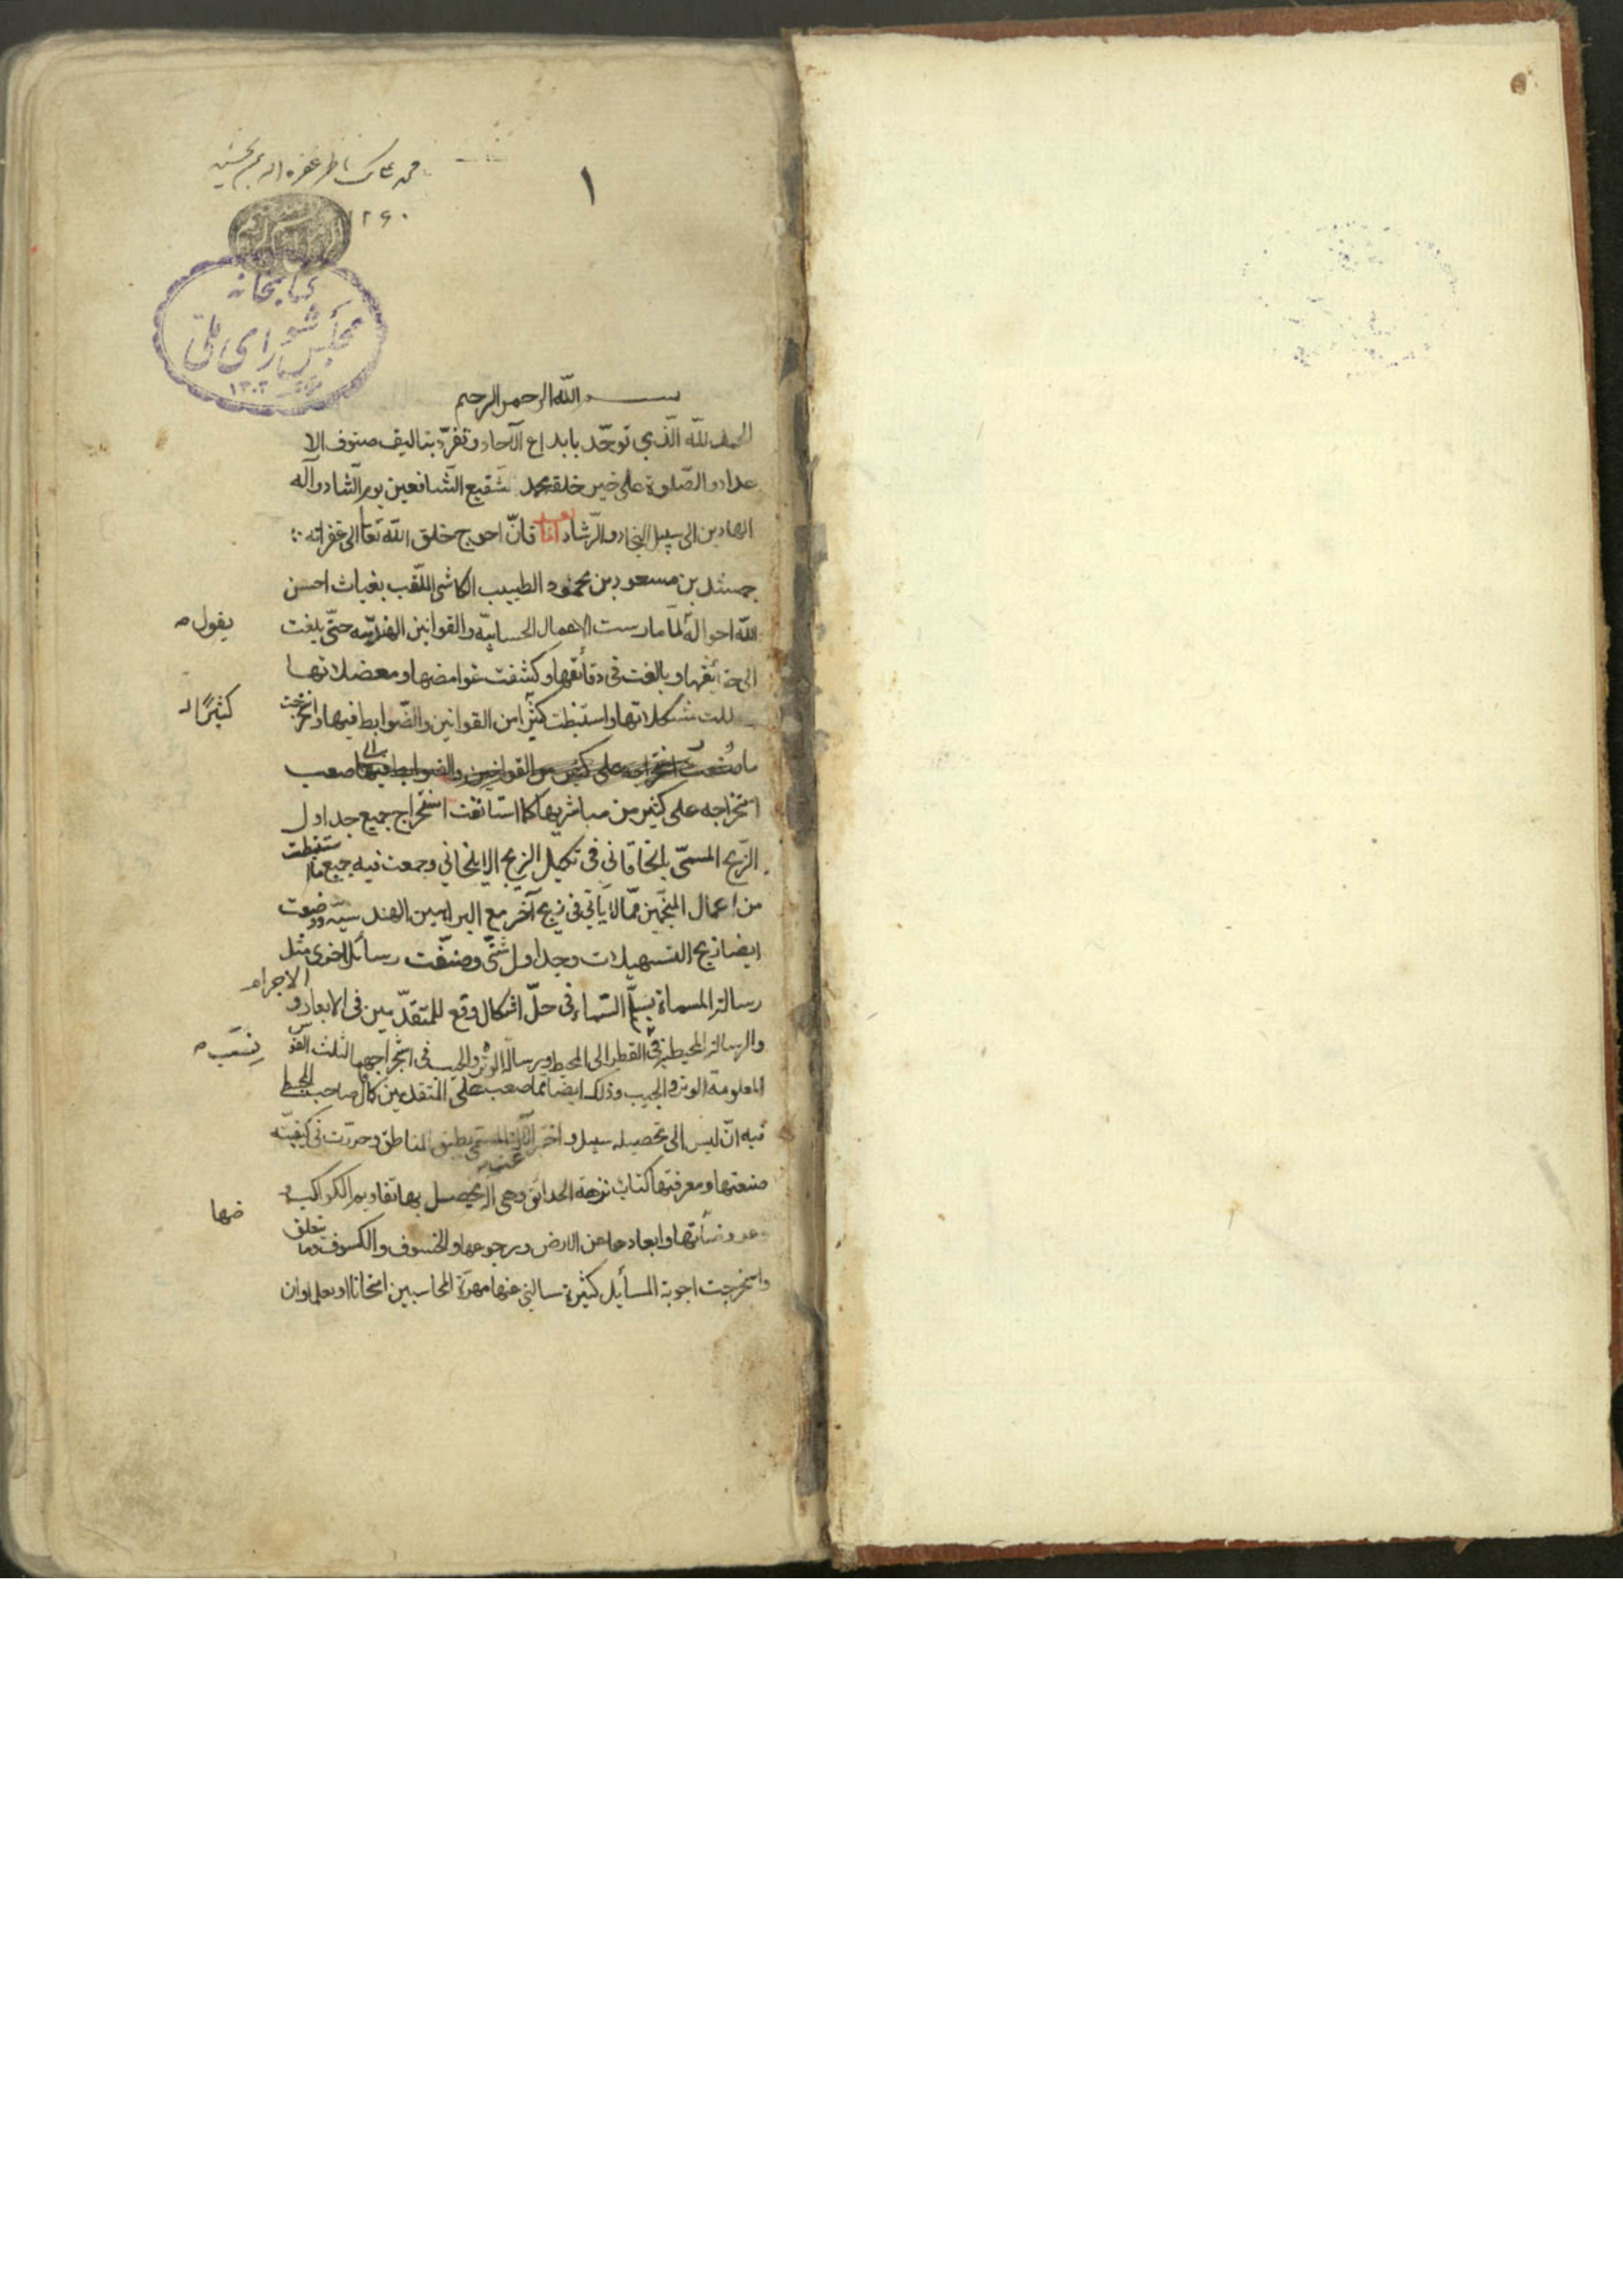 ١
١٢۶٠
کتابخانه
مجلس شورای ملی
١٣٠٢
بسم الله الرحمن الرحيم
الحمد لله الّذي توحّد بابداع الآحاد وتفرّد بتاليف صنوف الا
عداد والصّلوة على خير خلقه محمد شفيع الشّافعين يوم التّناد وآله
الهادين الى سبيل النجاة والرّشاد امّا بعد فانّ احوج خلق الله تعالى الى غفرانه
جمشيد بن مسعود بن محمود الطبيب الكاشي الملقّب بغياث احسن
الله احواله لمّا مارست الاعمال الحسابيّة والقوانين الهندسيّه حتّى بلغت
يقول
الى حقايقها وبالغت في دقائقها وكشفت غوامضها ومعضلاتها
وحللت مشكلاتها واستنبطت كثيرًا من القوانين والضّوابط فيها واستخرجت
كثيرًا
ما صعب
استخراجه على كثير من مباشريها كما استانفت استخراج جميع جداول
الزّيج المسمّى بالخاقاني في تكميل الزيج الايلخاني وجمعت فيه جميع ما استنبطت
من اعمال المنجّمين ممّا لا يأتي في زيج آخر مع البراهين الهندسيّه ووضعت
ايضا زيج التسهيلات وجداول شتّى وصنّفت رسائل اخرى مثل
رسالة المسماة بسلّم السّماء في حلّ اشكال وقع للمتقدّمين في الابعاد و
الاجرام
والرسالة المحيطية في القطر الى المحيط ورسالة الوتر والجيب في استخراجهما لثلث القوس
نسبة
المعلومة الوتر والجيب وذلك ايضا ممّا صعب على المتقدمين كما قال صاحب المجسطي
فيه ان ليس الى تحصيله سبيل و المسمّى بطبق المناطق وحررت في كيفيّة
صنعتها ومعرفتها كتاب نزهة الحدائق وهي آلة يحصل بها تقاويم الكواكب و
عروضها
وابعادها عن الارض ورجوعها والخسوف والكسوف وما يتعلق
واستخرجت اجوبة المسائل كثيرة سالني عنها مهرة المحاسبين امتحانا او تعلما وان